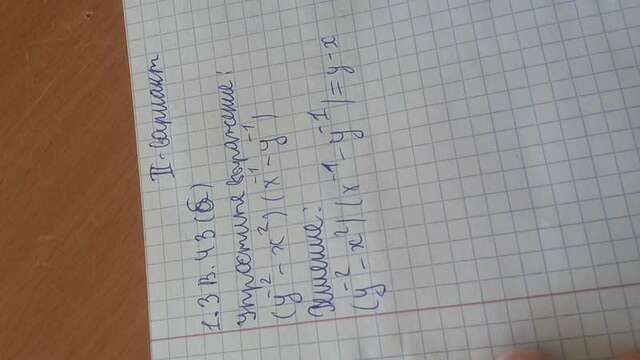 II-вариант
1.3 В. 43 (б)
упростите выражение:
(y⁻² - x²) (x⁻¹ - y⁻¹)
Решение:
(y⁻² - x²) (x⁻¹ - y⁻¹) = y - x